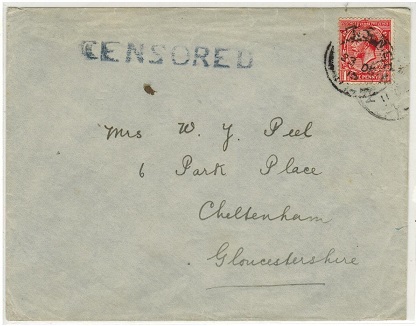 CENSORED
Mrs W. J. Peel
6 Park Place
Cheltenham
Gloucestershire